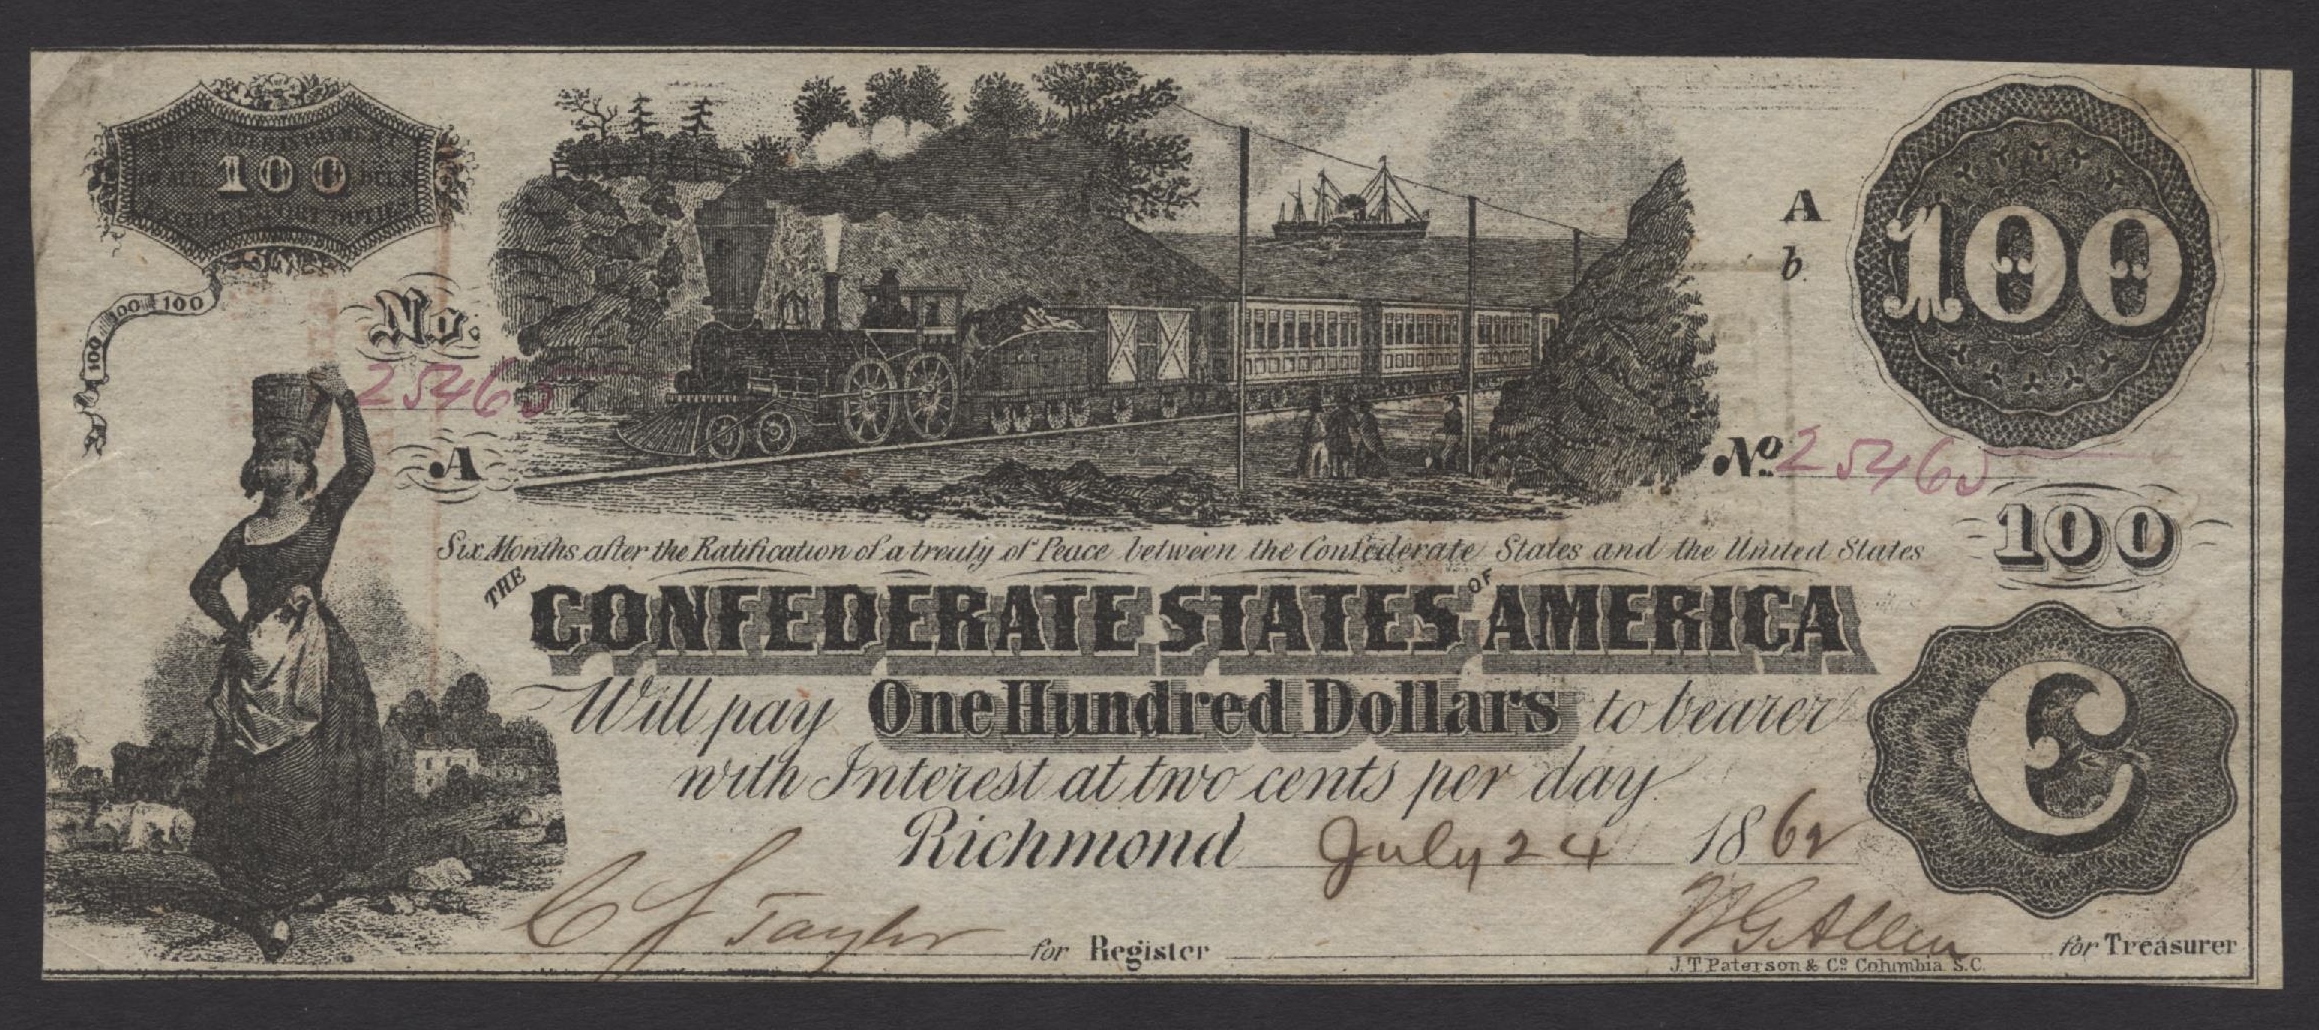 100
100 100 100
No.
25465
A
A
b
100
No 25465
100
Six Months after the Ratification of a treaty of Peace between the Confederate States and the United States
THE CONFEDERATE STATES OF AMERICA
Will pay One Hundred Dollars to bearer
with Interest at two cents per day
Richmond July 24 1862
C
C J Taylor for Register W G Allen for Treasurer
J.T. Paterson & Co. Columbia. S.C.